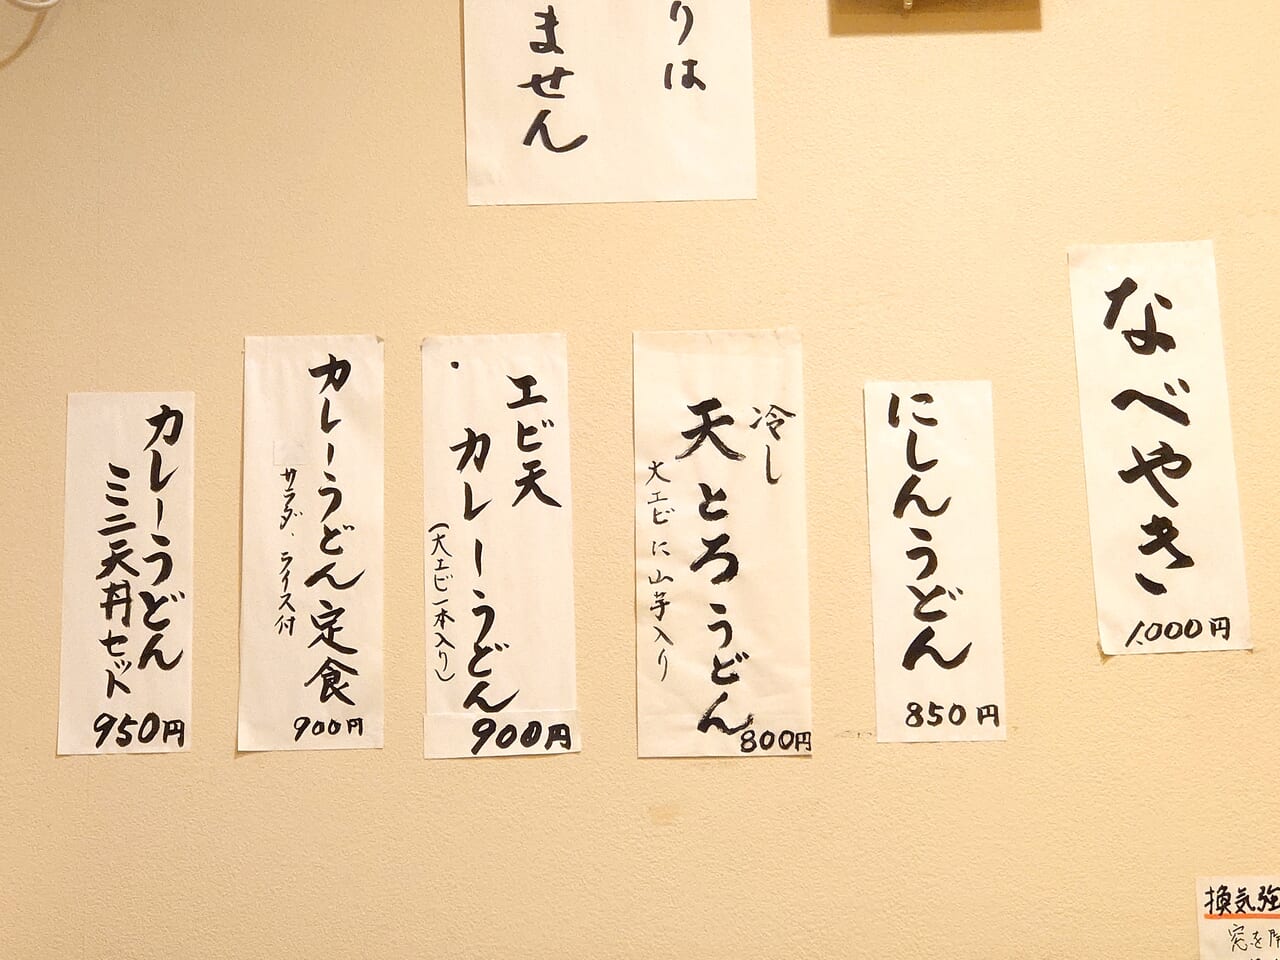 りは
ません
なべやき
1,000円
にしんうどん
850円
冷し
天とろうどん
大エビに山芋入り
800円
エビ天
カレーうどん
(大エビ一本入り)
900円
カレーうどん定食
サラダ、ライス付
900円
カレーうどん
ミニ天丼セット
950円
換気強
窓を開